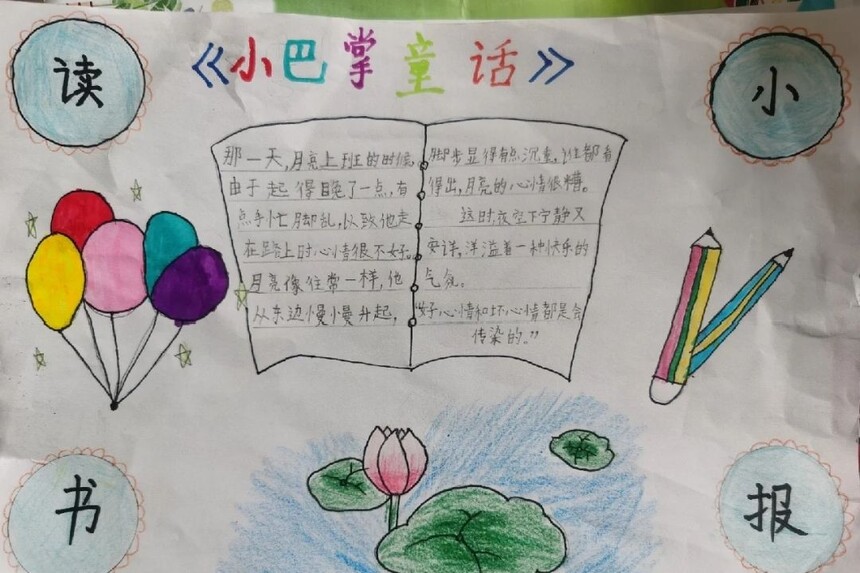 读
《小巴掌童话》
小
那一天,月亮上班的时候,
由于起得晚了一点,有
点手忙脚乱,以致他走
在路上时心情很不好。
月亮像往常一样,他
从东边慢慢升起,
脚步显得有点沉重,谁都看
得出,月亮的心情很糟。
这时,夜空下宁静又
安详,洋溢着一种快乐的
气氛。
"好心情和坏心情都是会
传染的。"
书
报